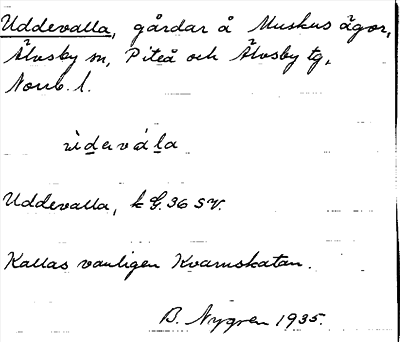 Uddevalla, gårdar å Muskus ägor,
Älvsby sn, Piteå och Älvsby tg,
Norrb. l.
ùdevála
Uddevalla, k G. 36 SV.
Kallas vanligen Kvarnskatan.
B. Nygren 1935.